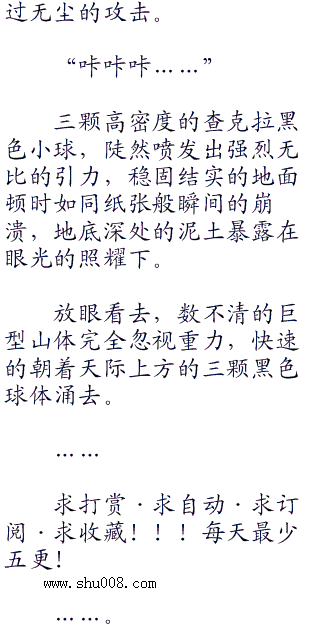 过无尘的攻击。
“咔咔咔……”
三颗高密度的查克拉黑
色小球，陡然喷发出强烈无
比的引力，稳固结实的地面
顿时如同纸张般瞬间的崩
溃，地底深处的泥土暴露在
眼光的照耀下。
放眼看去，数不清的巨
型山体完全忽视重力，快速
的朝着天际上方的三颗黑色
球体涌去。
……
求打赏·求自动·求订
阅·求收藏！！！每天最少
五更！
www.shu008.com
……。